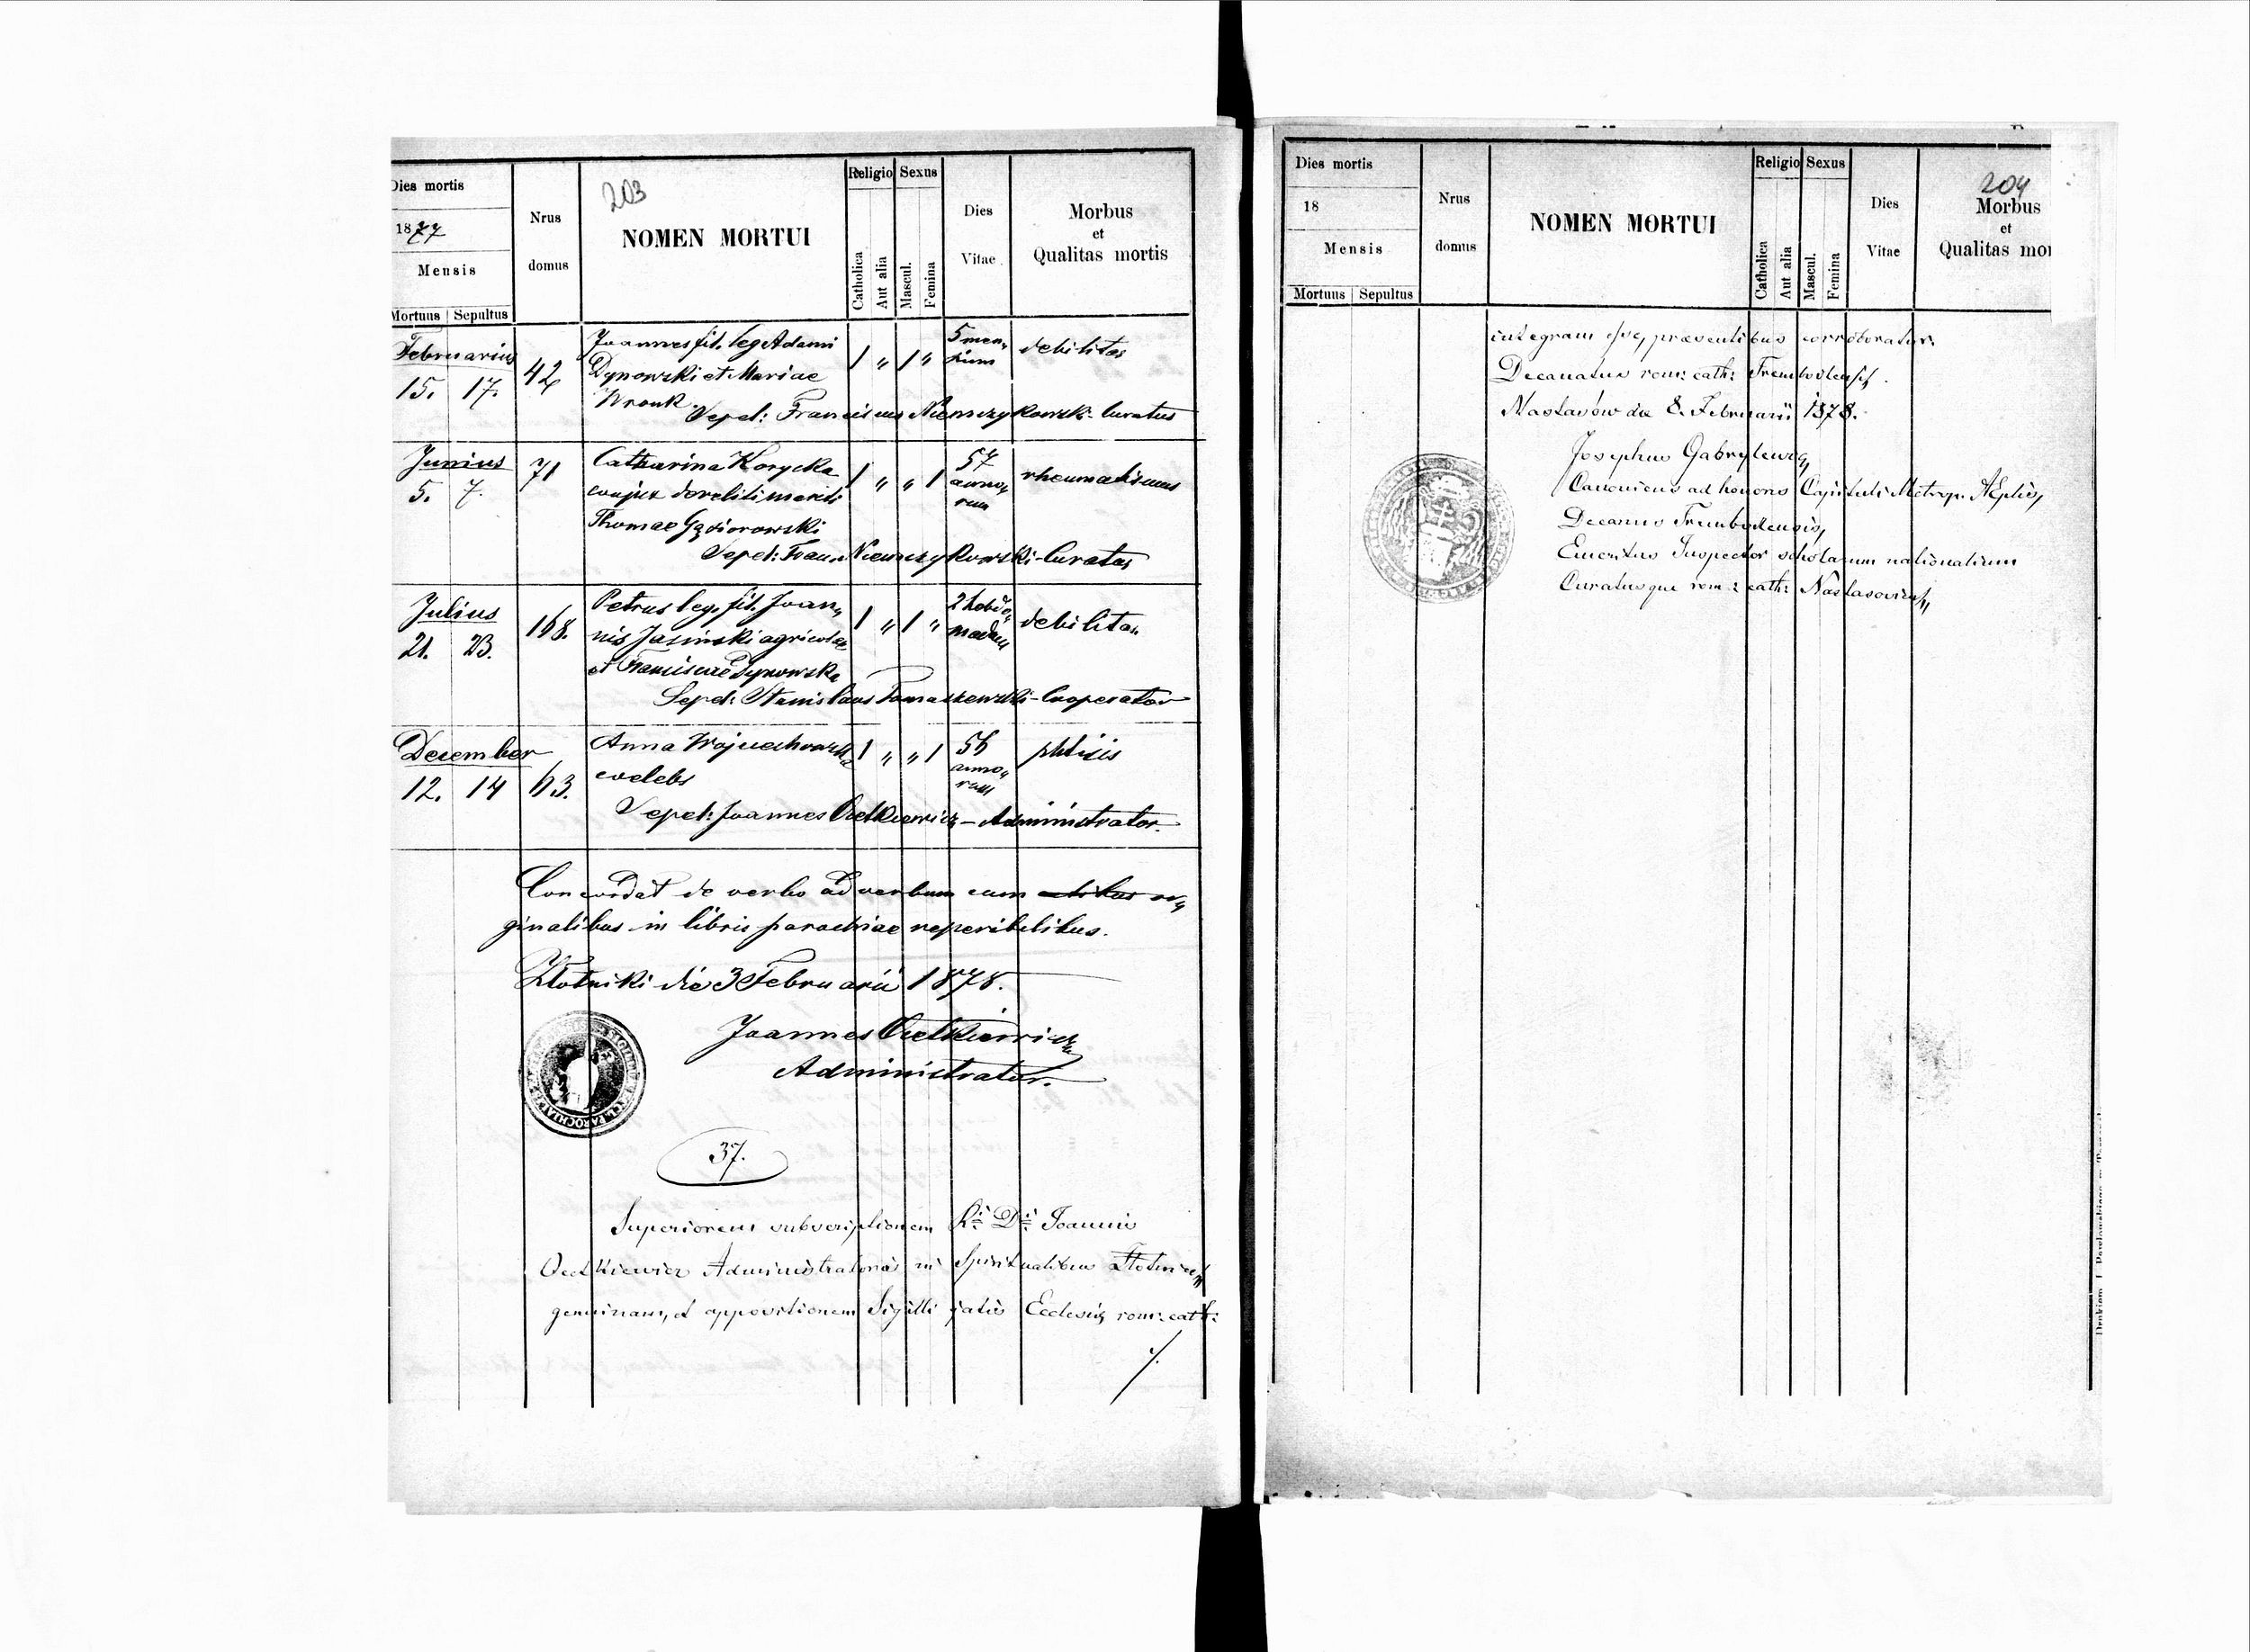 203
Dies mortis
1877
Mensis
Mortuus Sepultus
Nrus domus
NOMEN MORTUI
Religio
Catholica
Aut alia
Sexus
Mascul.
Femina
Dies Vitae
Morbus
et
Qualitas mortis
Februarius
15. 17.
42
Joannes fil. leg Adami
Dynowski et Mariae
Wronk.
1 " 1 "
5 men„
sium
debilitas
Sepel: Franciscus Niemczykowski - Curatus
Junius
5. 7.
71
Catharina Korycka
conjux derelicti mariti
Thomae Gąsiorowski
1 " " 1
57
anno„
rum
rheumatismus
Sepel: Franc. Niemczykowski - Curatus
Julius
21. 23.
168.
Petrus leg. fil. Joan„
nis Jasinski agricolae
et Franciscae Dynowska
1 " 1 "
2 hebdo„
madum
debilitas.
Sepel: Stanislaus Tomaszewski - Cooperator
December
12. 14
63.
Anna Wojciechowska
coelebs
1 " " 1
56
anno„
rum
phtisis
Sepel: Joannes Occtkiewicz - Administrator.
Concordat de verbo ad verbum cum ori„
ginalibus in libris parochiae reperibilibus.
Złotniki die 3 Februarii 1878.
Joannes Occtkiewicz
Administrator.
37.
Superiorem subscriptionem Ri Di Joannis
Occtkiewicz Administratoris in Spiritualibus
genuinam, et appositionem Sigilli Ecclesiae rom: cath:
./.
204
Dies mortis
18
Mensis
Mortuus Sepultus
Nrus domus
NOMEN MORTUI
Religio
Catholica
Aut alia
Sexus
Mascul.
Femina
Dies Vitae
Morbus
et
Qualitas mor
integram esse, praesentibus corroboratur.
Decanatus rom: cath: Trembovlensis.
Nastasów die 8. Februarii 1878.
Josephus Gabrylewicz
Canonicus ad honores Capituli Metrop.
Decanus Trembovlensis,
Emeritus Inspector scholarum nationalium
Curatusque rom: cath: Nastasoviensis